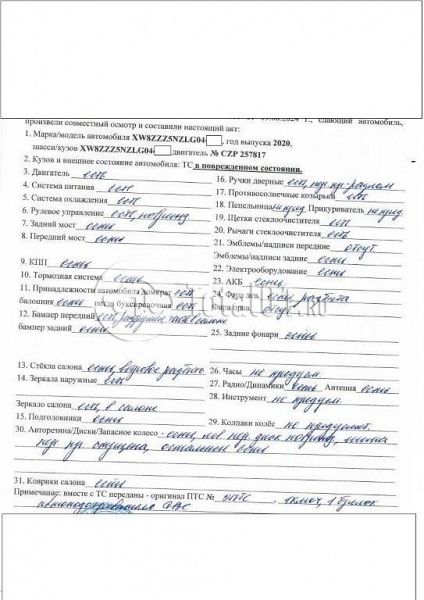 произвели совместный осмотр и составили настоящий акт:
1. Марка/модель автомобиля XW8ZZZ5NZLG04 , год выпуска 2020,
шасси/кузов XW8ZZZ5NZLG04 двигатель № CZP 257817
2. Кузов и внешнее состояние автомобиля: ТС в поврежденном состоянии.
3. Двигатель есть
16. Ручки дверные есть, пер. пр.
4. Система питания есть
17. Противосолнечные козырьки есть
5. Система охлаждения есть
18. Пепельница Прикуриватель
6. Рулевое управление есть,
19. Щетки стеклоочистителя есть
7. Задний мост есть
20. Рычаги стеклоочистителя есть
8. Передний мост есть
21. Эмблемы/надписи передние отсут
Эмблемы/надписи задние есть
9. КПП есть
22. Электрооборудование есть
10. Тормозная система есть
23. АКБ есть
11. Принадлежности автомобиля домкрат есть
24. Фара лев. есть, разбита
балонник есть петля буксировочная есть
Фара прав. отсут
12. Бампер передний есть, разрушен
бампер задний есть
25. Задние фонари есть
13. Стёкла салона есть,
26. Часы не предусм.
14. Зеркала наружные есть
27. Радио/Динамики есть Антенна есть
28. Инструмент не предусм.
Зеркало салона есть, в салоне
15. Подголовники есть
29. Колпаки колёс не предусмот.
30. Авторезина/Диски/Запасное колесо - есть, лев. пер. диск
пер. пр. спущена, остальные есть
31. Коврики салона есть
Примечание: вместе с ТС переданы - оригинал ПТС № ЭПТС 1 ключ, 1 брелок